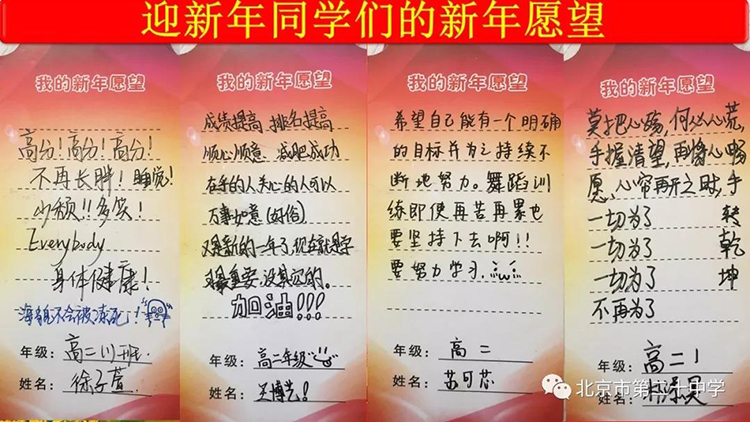 迎新年同学们的新年愿望
我的新年愿望
高分！高分！高分！
不再长胖！睡觉！
少烦!!多笑！
Everybody
身体健康！
不会被冻死！
年级：高二(1)班
姓名：徐子萱
我的新年愿望
成绩提高 排名提高
顺心顺意 减肥成功
在乎的人关心的人可以
万事如意(好俗)
又是新的一年了,现在就是学
习最重要,没其次的。
加油!!!
年级：高二年级
姓名：王博艺！
我的新年愿望
希望自己能有一个明确
的目标并为之持续不
断地努力。舞蹈训
练即使再苦再累也
要坚持下去啊!!
要努力学习.
年级：高二
姓名：苏可芯
我的新年愿望
莫把心殇,何必心荒,
手握清望,再将心畅
愿,心帘再开之时,手
一切为了 转
一切为了 乾
一切为了 坤
不再为了
年级：高二1
姓名：
北京市第二十中学